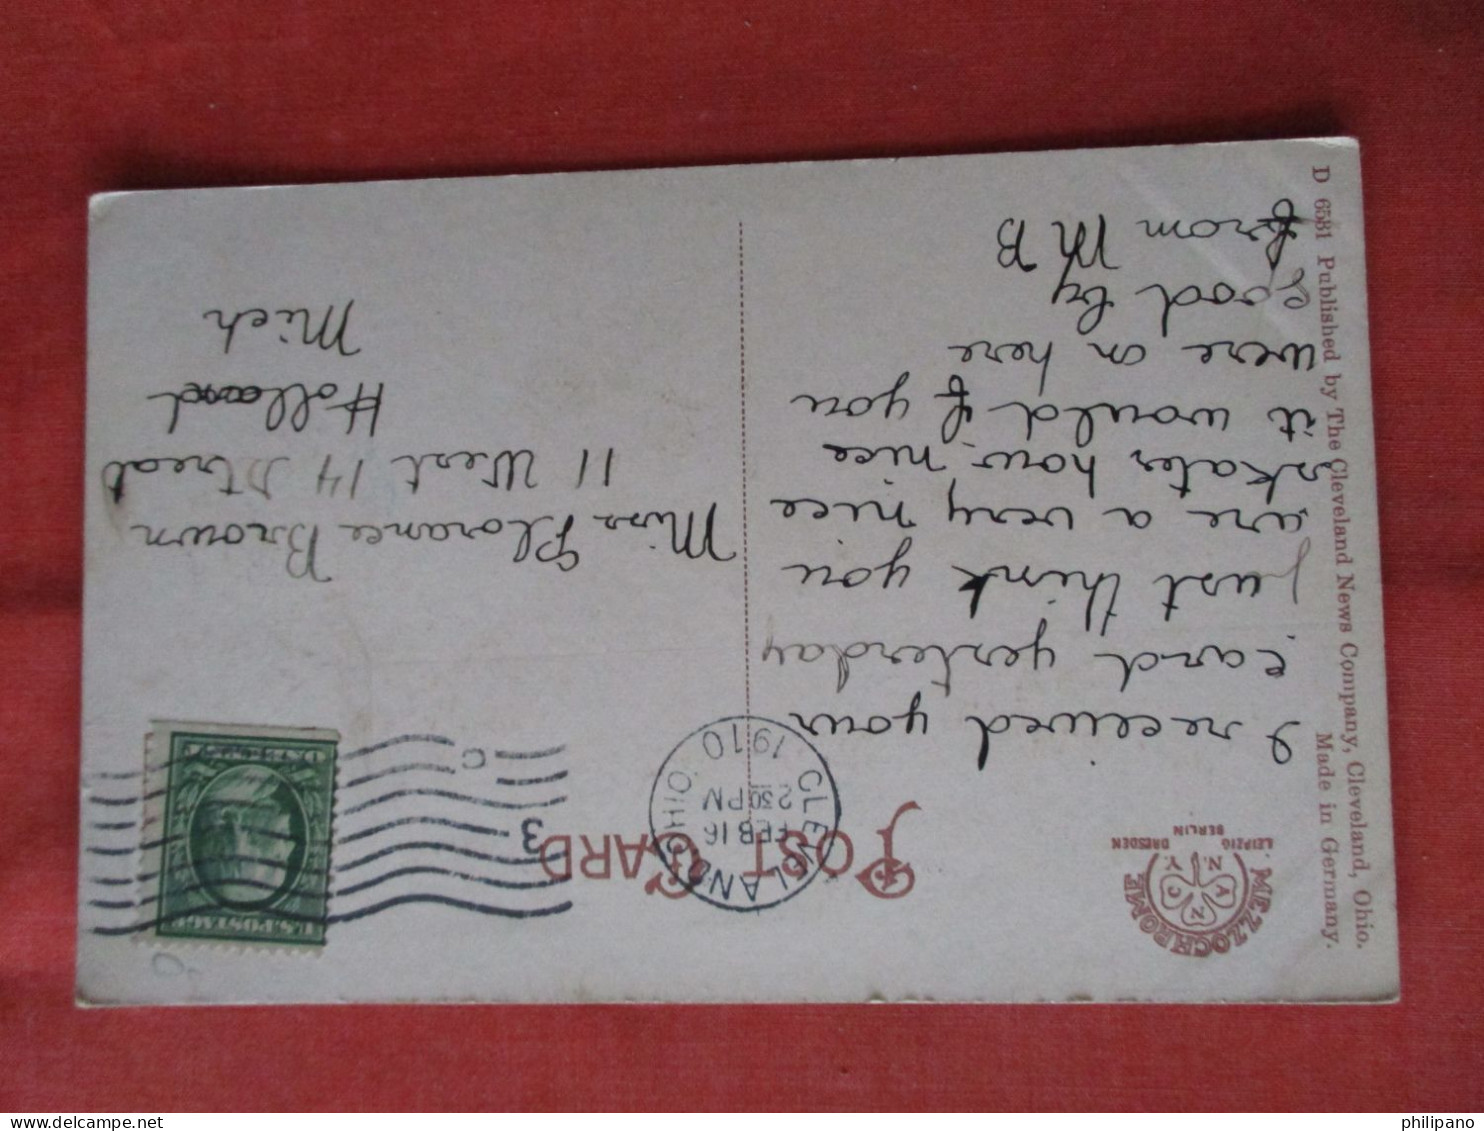 D 6581 Published by The Cleveland News Company, Cleveland, Ohio.
Made in Germany.
MEZZOCHROME
A N C N
N.Y.
LEIPZIG DRESDEN
BERLIN
POST CARD
CLEVELAND OHIO
FEB 16
2 30 PM
1910
3
C
U.S. POSTAGE
I received your
card yesterday
just think you
are a very nice
skater how nice
it would f you
were on here
good by
from M B
Miss Florance Brown
11 West 14 Streat
Holland
Mich
philipano